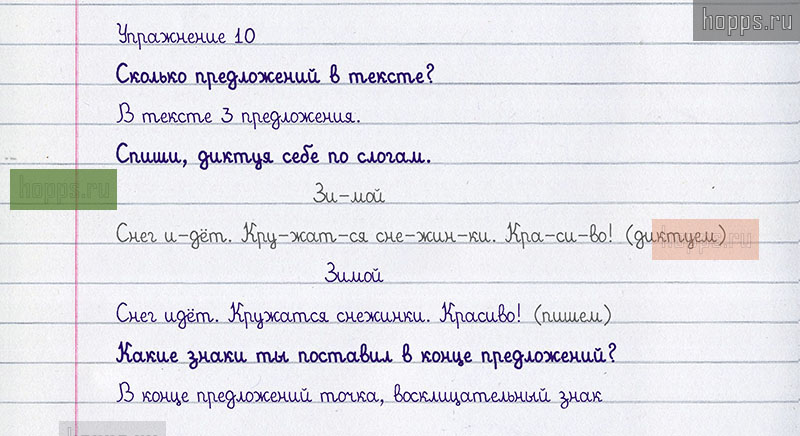 hopps.ru
Упражнение 10
Сколько предложений в тексте?
В тексте 3 предложения.
Спиши, диктуя себе по слогам.
hopps.ru
Зи-мой
Снег и-дёт. Кру-жат-ся сне-жин-ки. Кра-си-во! (диктуем)
hopps.ru
Зимой
Снег идёт. Кружатся снежинки. Красиво! (пишем)
Какие знаки ты поставил в конце предложений?
В конце предложений точка, восклицательный знак
hopps.ru